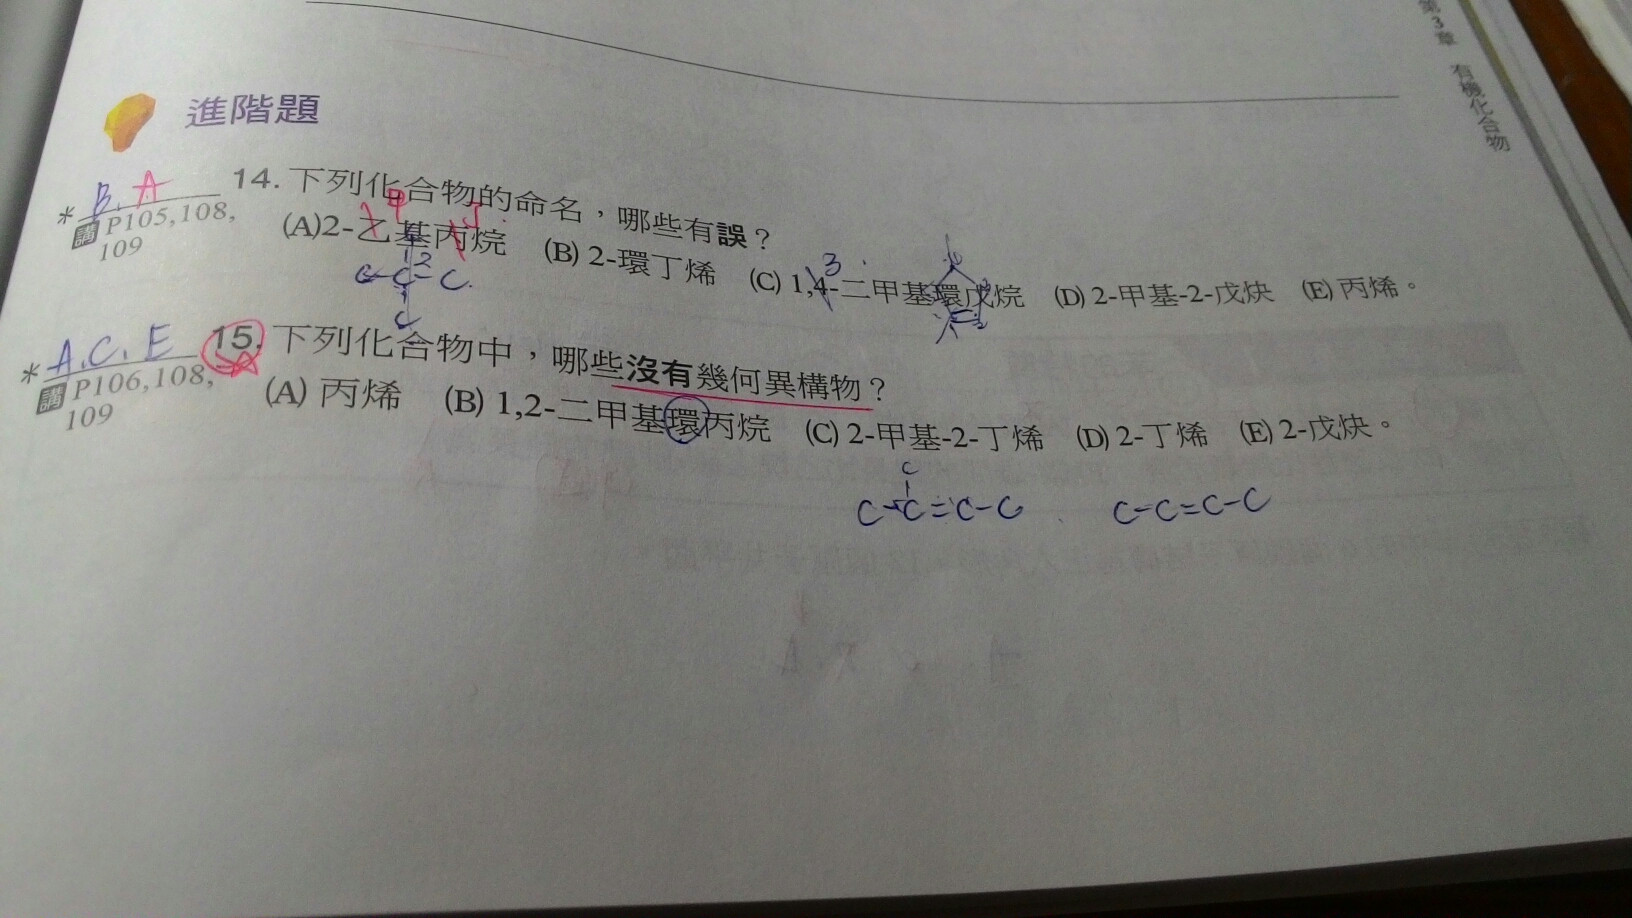 第3章 有機化合物
進階題
B. A 14. 下列化合物的命名，哪些有誤？
* 講 P105,108,109
甲 丁
(A)2-乙基丙烷 (B) 2-環丁烯 (C) 1,4-二甲基環戊烷 (D) 2-甲基-2-戊炔 (E) 丙烯。
3
2
C-C-C.
C
A.C.E 15. 下列化合物中，哪些沒有幾何異構物？
* 講 P106,108,109
(A) 丙烯 (B) 1,2-二甲基環丙烷 (C) 2-甲基-2-丁烯 (D) 2-丁烯 (E) 2-戊炔。
C
C-C=C-C C-C=C-C